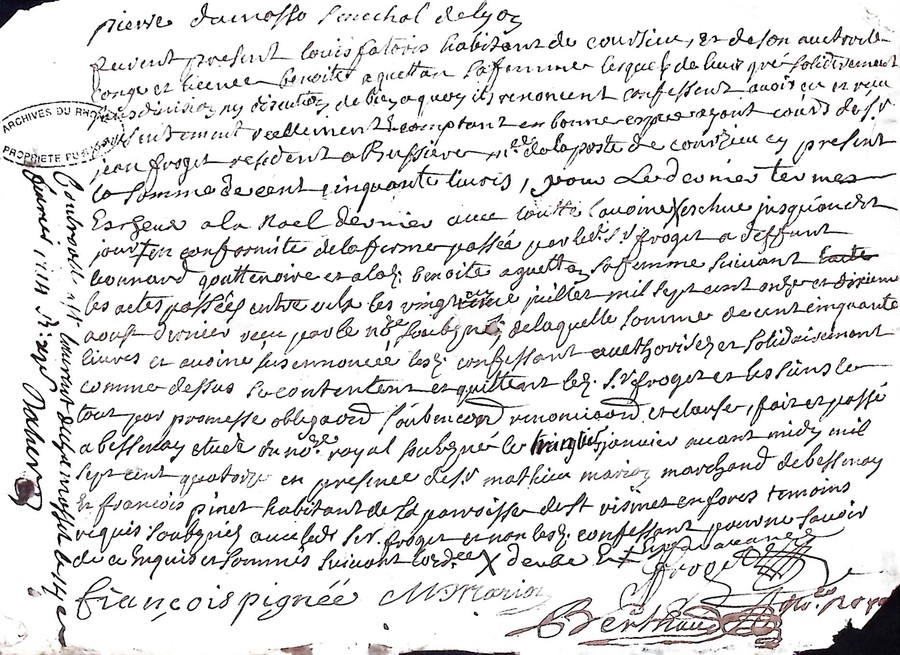 pierre damosso senechal de lyon
furent present louis fatoris habitant de coursieu, et de son authorite
conge et licence benoite aguettan sa femme lesquels de leur gré solidairement
sans division ny discution de bien a quoy ils renoncent confessent avoir eu et receu
presentement reellement et comptant en bonne especes ayant cours de sr
jean froget resident a Bussiere me de la poste de coursieu cy present
la somme de cent cinquante livres, pour le dernier termes
Escheue a la Noel dernier avec toutte lavoine X escheue jusques au dit
jour en conformite de la ferme passée par led. Sr froget a deffunt
bonnard gouttenoire et a lad. benoite aguettan sa femme suivant
les actes passées entre eulx les vingt juillet mil sept cent onze et
aoust dernier receu par le nore soubzné, de laquelle somme de cent cinquante
livres et avoine susennoncée lesd. confessant authorisée et solidairement
comme dessus se contentent et quittent led. Sr froget et les siens le
tout par promesse obligaond soubmond renonciaond et clause, fait et passé
a bessenay etude du nore royal soubzné le janvier avant midy mil
sept cent quatorze en presence de sr mathieu marion marchand de bessenay
Et françois pinet habitant de la paroisse de st
requis soubznés avec led. Sr. froget et non lesd. confessant pour ne scavoir
de ce enquis et sommés suivant lordce X deube Et
froget
françois pignée M Marion
Berthaud nore Royal
Controllé a st laurent de chamousset le 14e
ARCHIVES DU RHONE
PROPRIETE PUBLIQUE